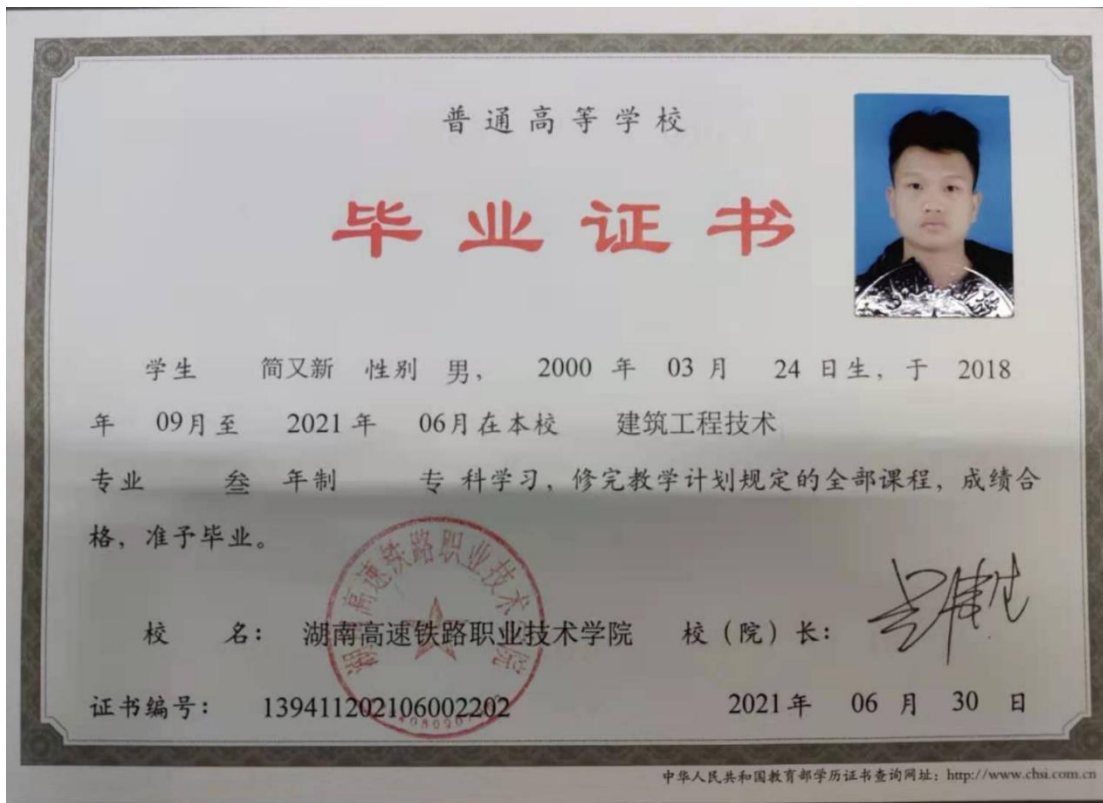 普通高等学校
毕业证书
学生 简又新 性别 男, 2000 年 03 月 24 日生, 于 2018
年 09月至 2021年 06月在本校 建筑工程技术
专业 叁 年制 专 科学习, 修完教学计划规定的全部课程, 成绩合
格, 准予毕业。
校 名: 湖南高速铁路职业技术学院 校(院)长:
湖南高速铁路职业技术学院
证书编号: 139411202106002202 2021年 06 月 30 日
中华人民共和国教育部学历证书查询网址: http://www.chsi.com.cn